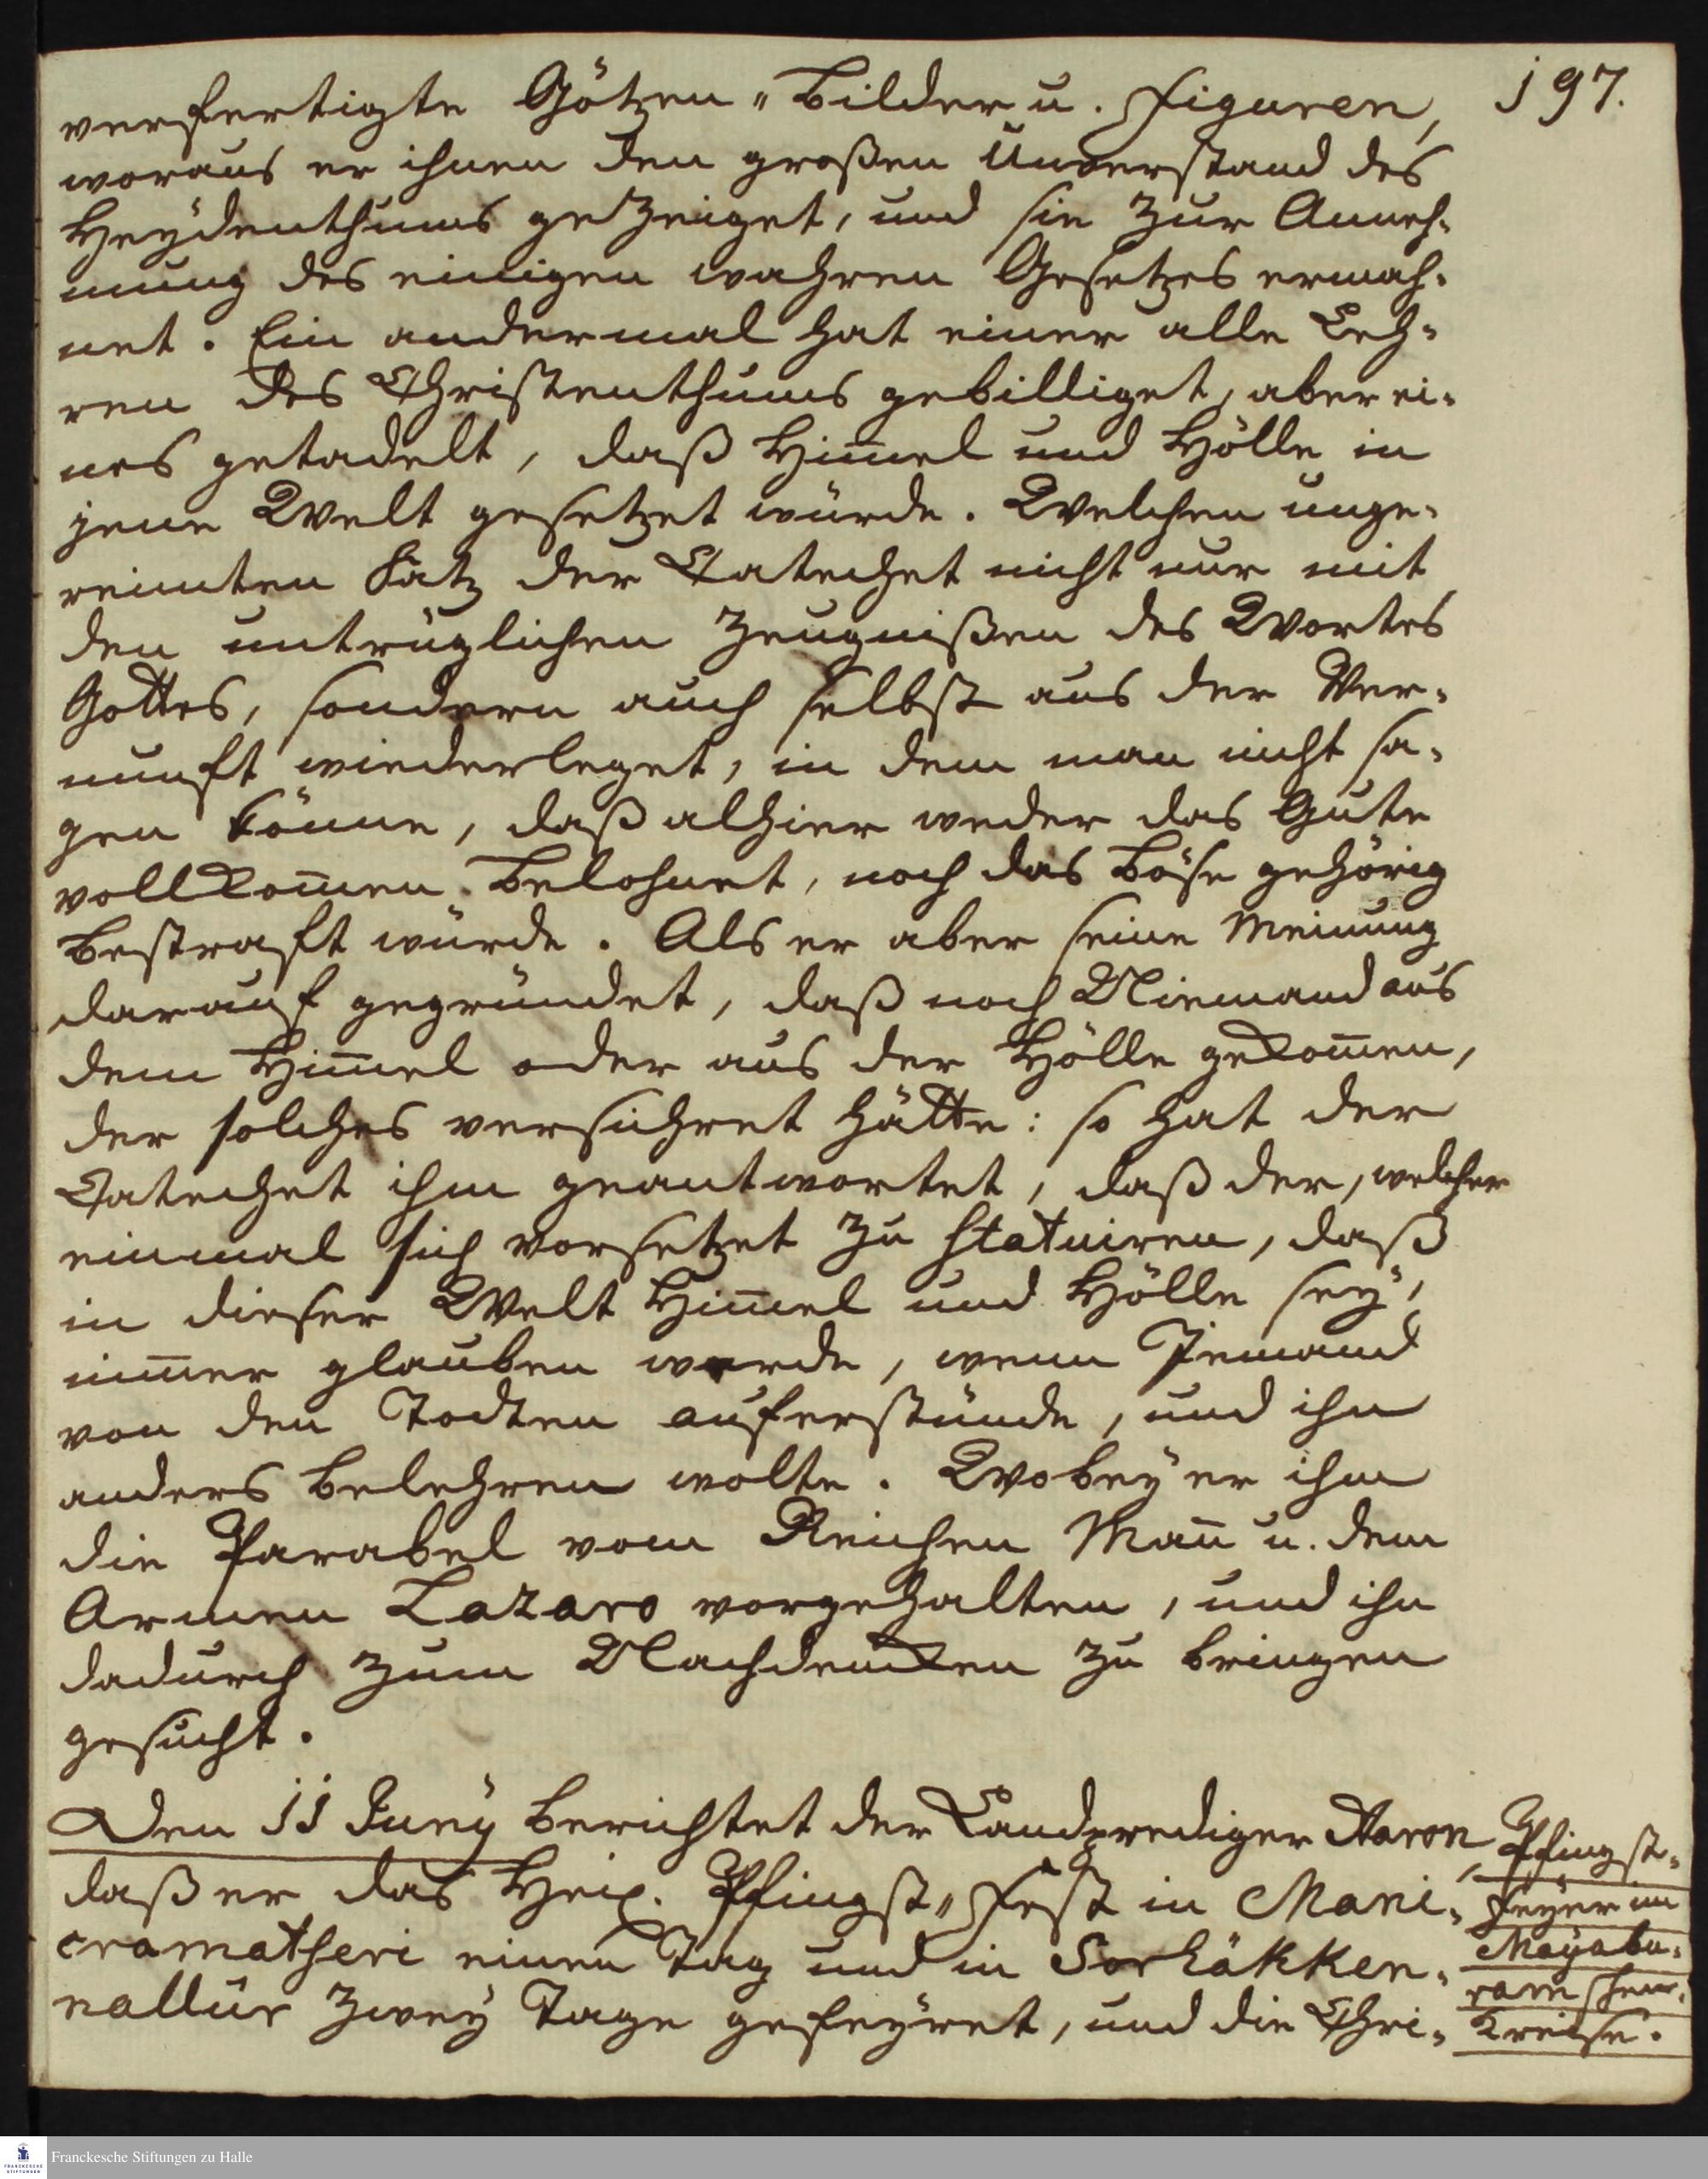 197.
verfertigte Götzen„Bilder u. Figuren,
woraus er ihnen den großen Unverstand des
Heÿdenthums gezeiget, und sie zur Anneh-
mung des einigen wahren Gesetzes ermah-
net. Ein andermal hat einer alle Leh-
ren des Christenthums gebilliget, aber ei-
nes getadelt, daß Him̄el und Hölle in
jene Welt gesetzet würde. Welchen unge-
reimten Satz der Catechet nicht nur mit
den untrüglichen Zeugnißen des Wortes
Gottes, sondern auch selbst aus der Ver-
nunft wiederleget, in dem man nicht sa-
gen könne, daß alhier weder das Gute
vollkom̄en belohnet, noch das Böse gehörig
bestraft würde. Als er aber seine Meinung
darauf gegründet, daß noch Niemand aus
dem Him̄el oder aus der Hölle gekom̄en,
der solches versichret hätte: so hat der
Catechet ihm geantwortet, daß der, welcher
einmal sich vorsetzet zu statuiren, daß
in dieser Welt Him̄el und Hölle seÿ,
im̄er glauben werde, wenn Jemand
von den Todten auferstünde, und ihn
anders belehren wolte. Wobeÿ er ihm
die Parabel vom Reichen Man̄ u. dem
Armen Lazaro vorgehalten, und ihn
dadurch zum Nachdencken zu bringen
gesucht.
Den 11 Junÿ berichtet der Landprediger Aaron,
daß er das Heil. Pfingst„Fest in Mani-
cramatheri einen Tag und in Sorhäkken-
nallur zweÿ Tage gefeÿret, und die Chri-
Pfingst-
Feÿer im
Majabu-
ramschen
Kreise.
Franckesche Stiftungen zu Halle